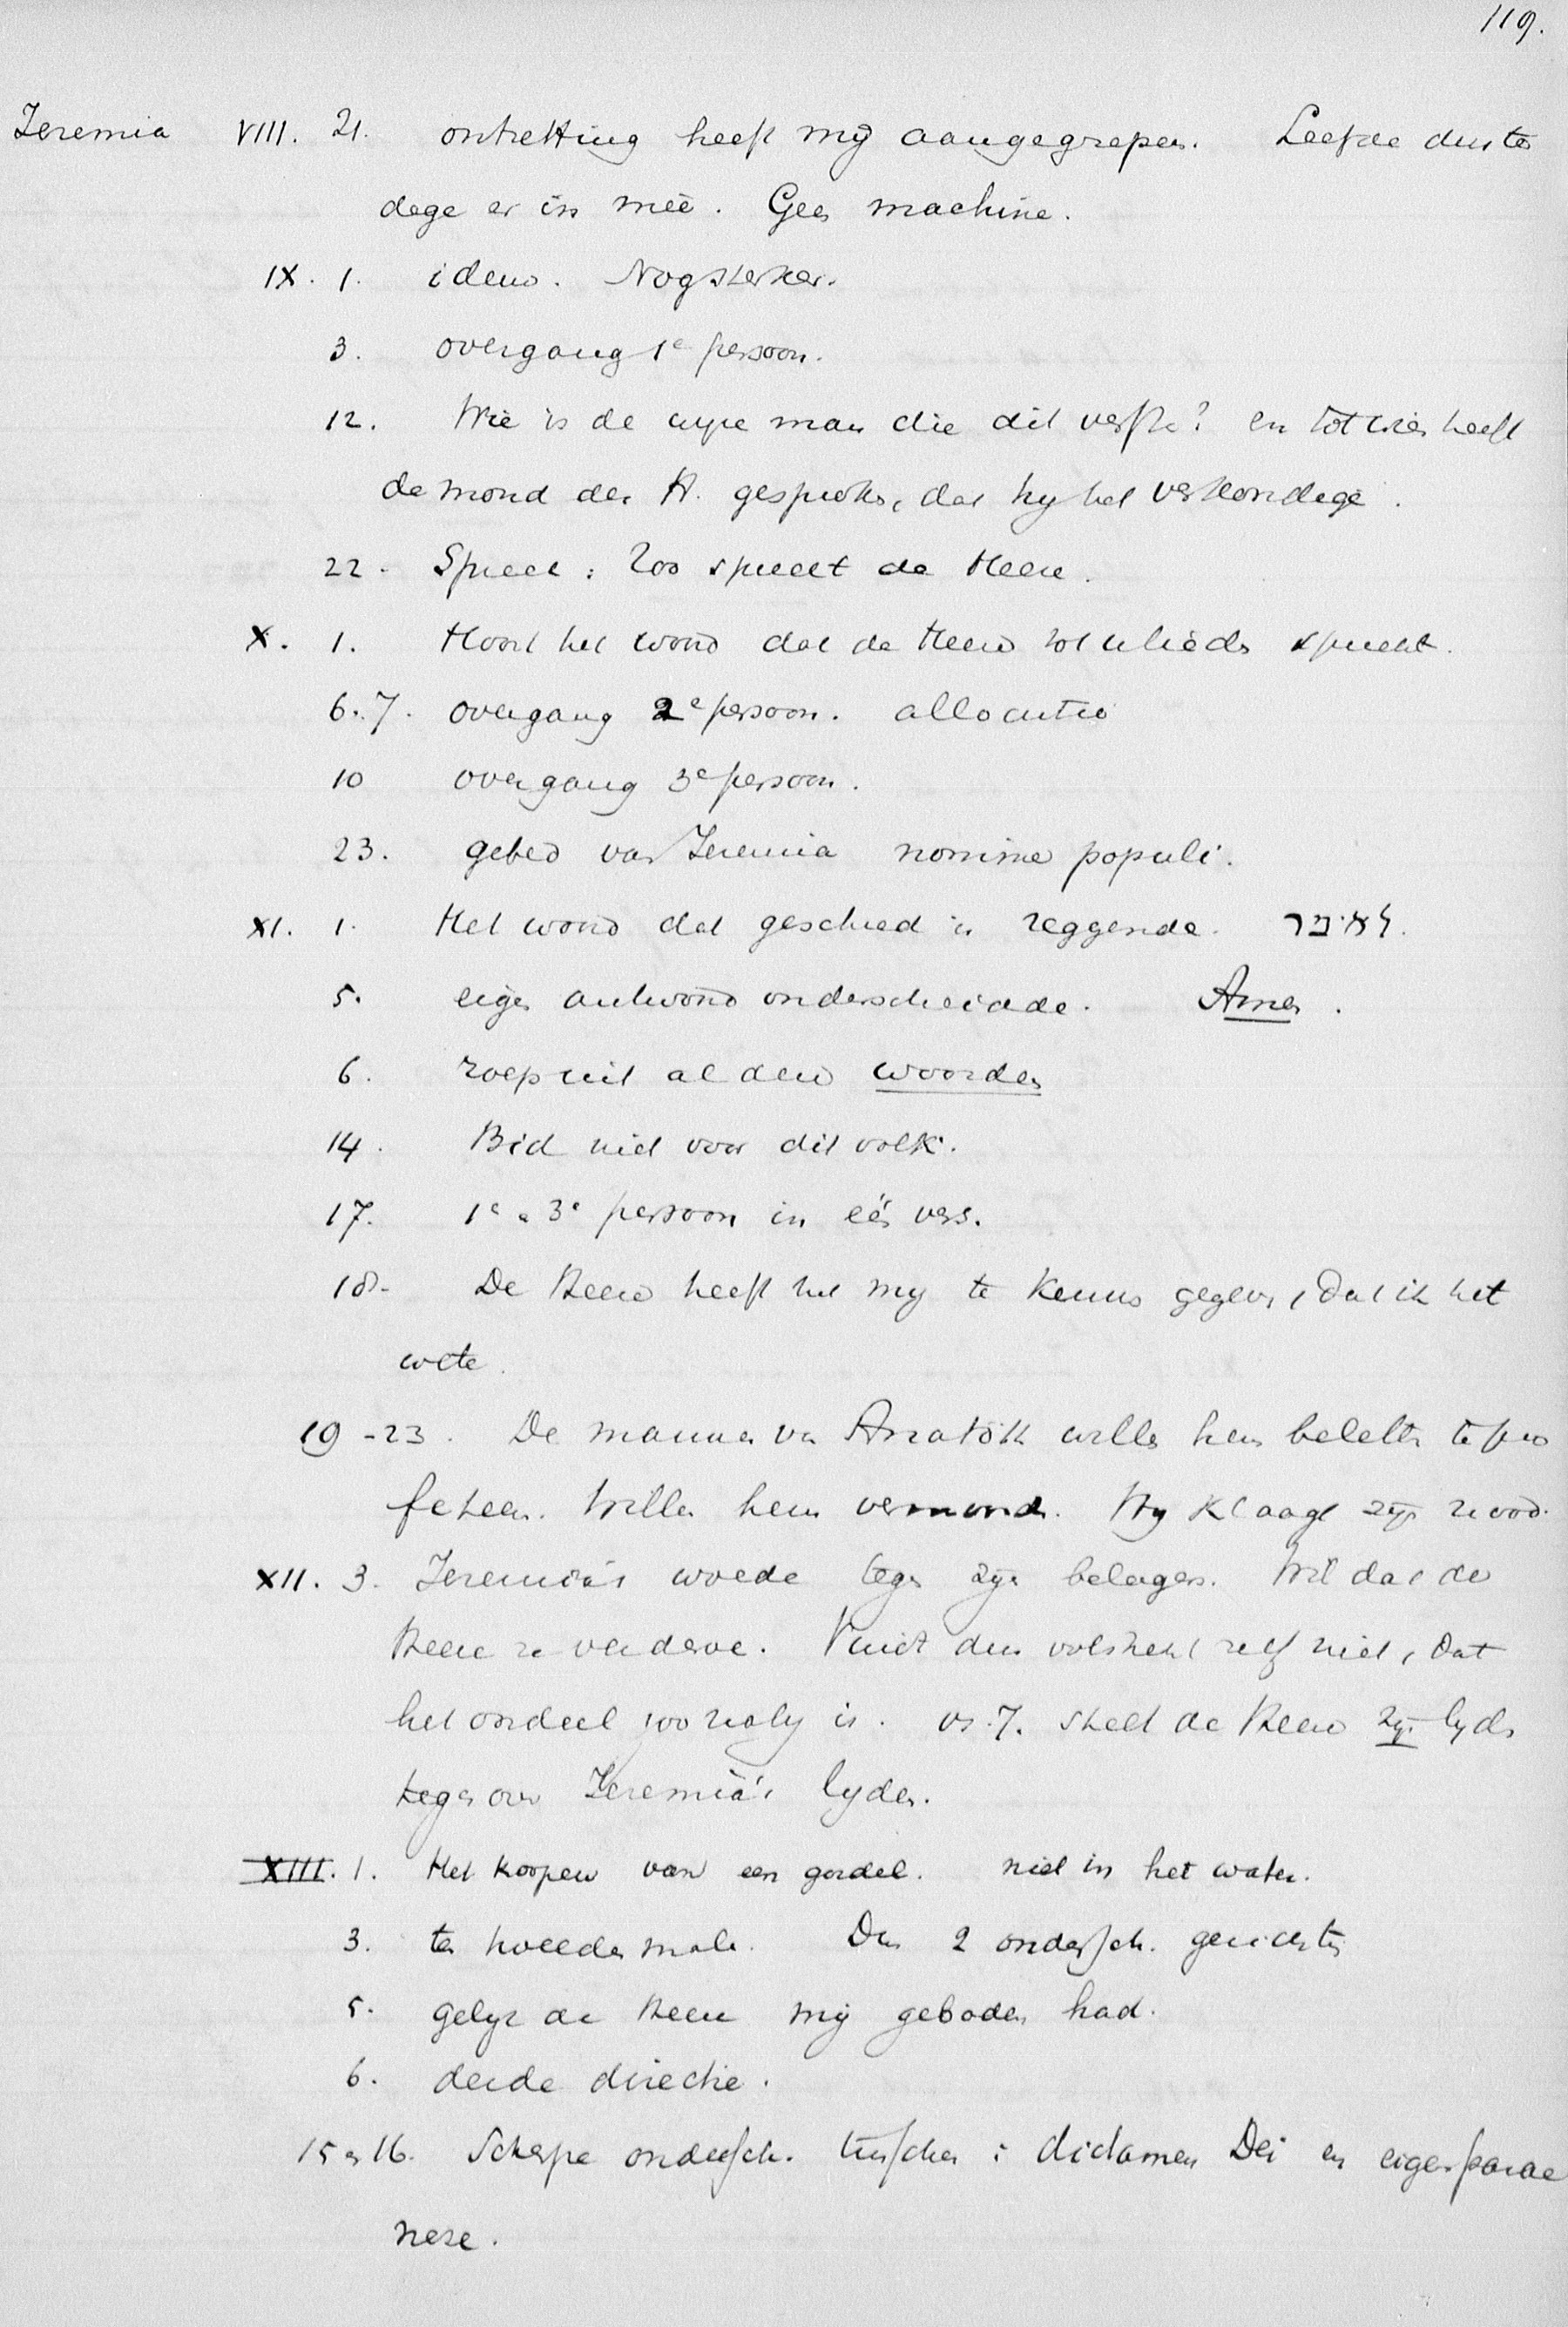 119.
Jeremia VIII. 21. ontzetting heeft mij aangegrepen. Leefde dus ter
dege er in meê. Geen machine.
IX. 1. idem. Nog sterker.
3. overgang 1e persoon.
12. Wie is de wijze man die dit verst? en tot wien heeft
de mond des H. gesproken, dat hij het verkondige.
22. Spreek: Zoo spreekt de Heere.
X. 1. Hoort het woord dat de Heere tot ulieden spreekt.
6.7. overgang 2e persoon. allocutio
10 overgang 3e persoon.
23. gebed van Jeremia nomine populi.
XI. 1. Het woord dat geschied is zeggende. לאמר.
5. eigen antwoord onderscheidde. Amen.
6. roep uit al deze woorden
14. Bid niet voor dit volk.
17. 1e en 3e persoon in één vers.
18. De Heere heeft het mij te kennen gegeven, dat ik het
wete.
19-23. De mannen van Anatoth willen hem beletten te pro
feteeren. Willen hem vermoorden. Hij klaagt zijn nood.
XII. 3. Jeremia's woede tegen zijn belagers. Wil dat de
Heere ze verderve. dus volstrekt zelf niet, dat
het oordeel is. vs. 7. stelt de Heere zijn lijden
tegenover Jeremia's lijden.
XIII. 1. Het koopen van een gordel. niet in het water.
3. ten tweeden male. Dus 2 ondersch. gezichten
5. gelijk de Heere mij geboden had.
6. derde directie.
15 en 16. Scherpe ondersch. tusschen: dictamen Dei en eigen parae
nese.